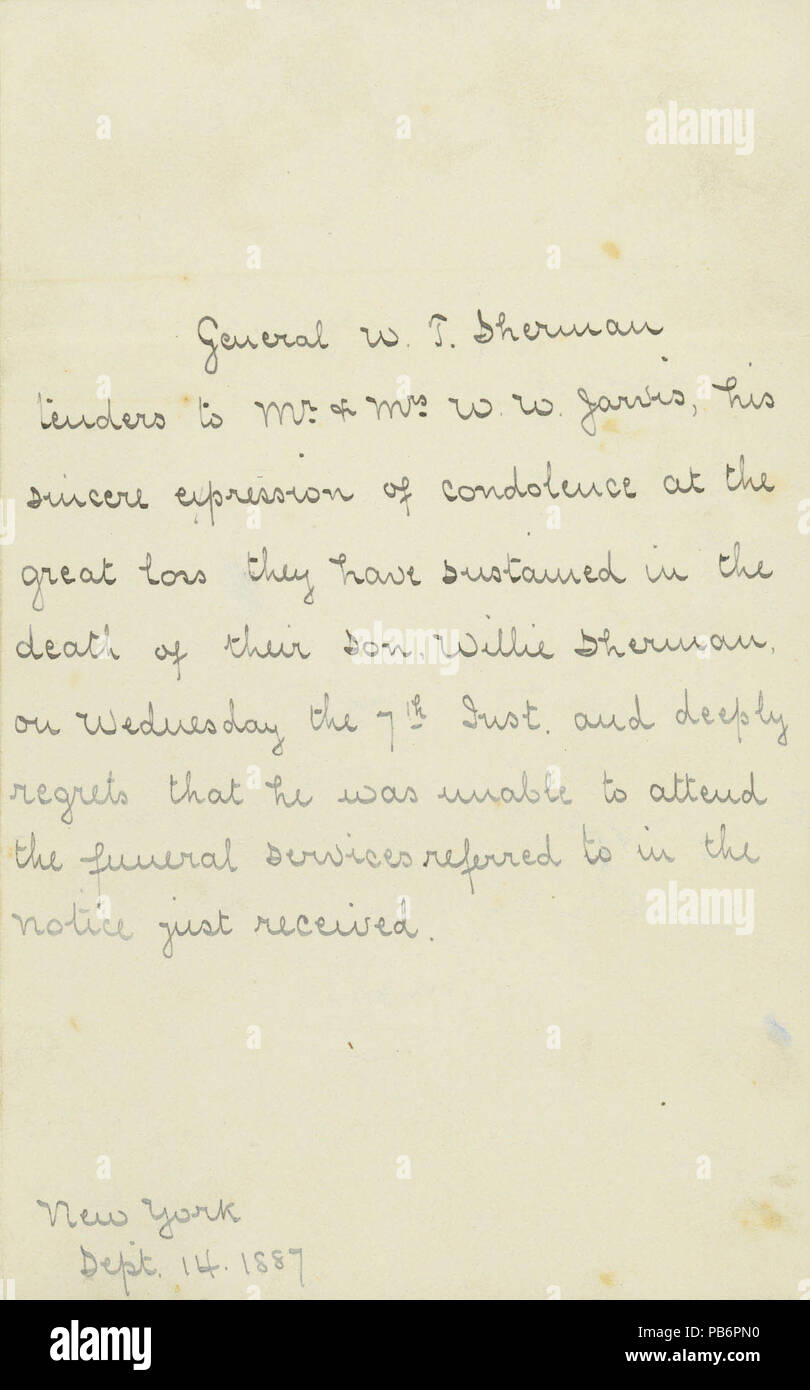 General W. T. Sherman
tenders to Mr. & Mrs W. W. Jarvis, his
sincere expression of condolence at the
great loss they have sustained in the
death of their son, Willie Sherman,
on Wednesday the 7th Inst. and deeply
regrets that he was unable to attend
the funeral services referred to in the
notice just received.
New York
Sept. 14. 1887
alamy
Image ID: PB6PN0
www.alamy.com